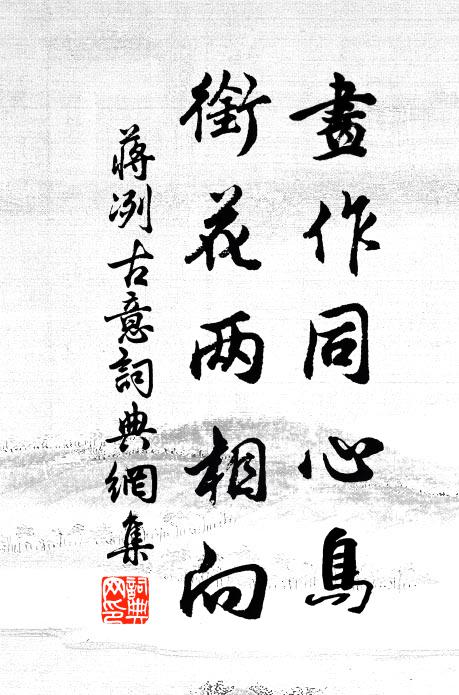 畫作同心鳥
銜花两相向
蔣冽古意詞典網集
詞典网印